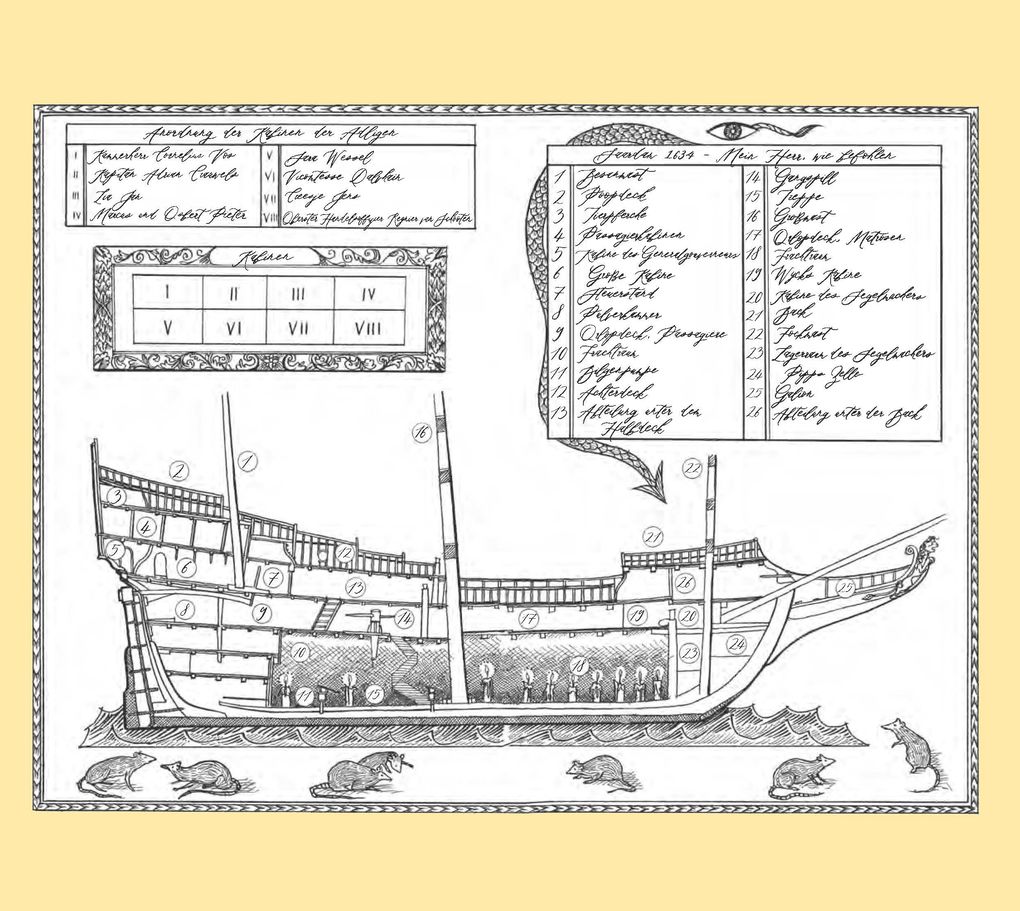 Anordnung der Kabinen der Adligen
I Kammerherr Cornelius Vos
II Kapitän Adrian Crauwels
III Lia Jan
IV Marcus und Osbert Pieter
V Sara Wessel
VI Vicomtesse Dalvhain
VII Creesje Jens
VIII Oberster Handelskaufmann Reynier van Schooten
Kabinen
I II III IV
V VI VII VIII
Saardam 1634 – Mein Herr, wie befohlen
1 Besanmast
2 Poopdeck
3 Tierpferche
4 Passagierkabinen
5 Kabine des Generalgouverneurs
6 Große Kabine
7 Steuerstand
8 Pulverkammer
9 Orlopdeck, Passagiere
10 Frachtraum
11 Bilgenpumpe
12 Achterdeck
13 Abteilung unter dem
Halbdeck
14 Gangspill
15 Treppe
16 Großmast
17 Orlopdeck, Matrosen
18 Frachtraum
19 Wycks Kabine
20 Kabine des Segelmachers
21 Back
22 Fockmast
23 Lagerraum des Segelmachers
24 Pipps Zelle
25 Galion
26 Abteilung unter der Back
16
1
22
2
3
21
4
12
5
6
7
13
26
25
8
9
14
17
19
20
24
10
23
18
11
15